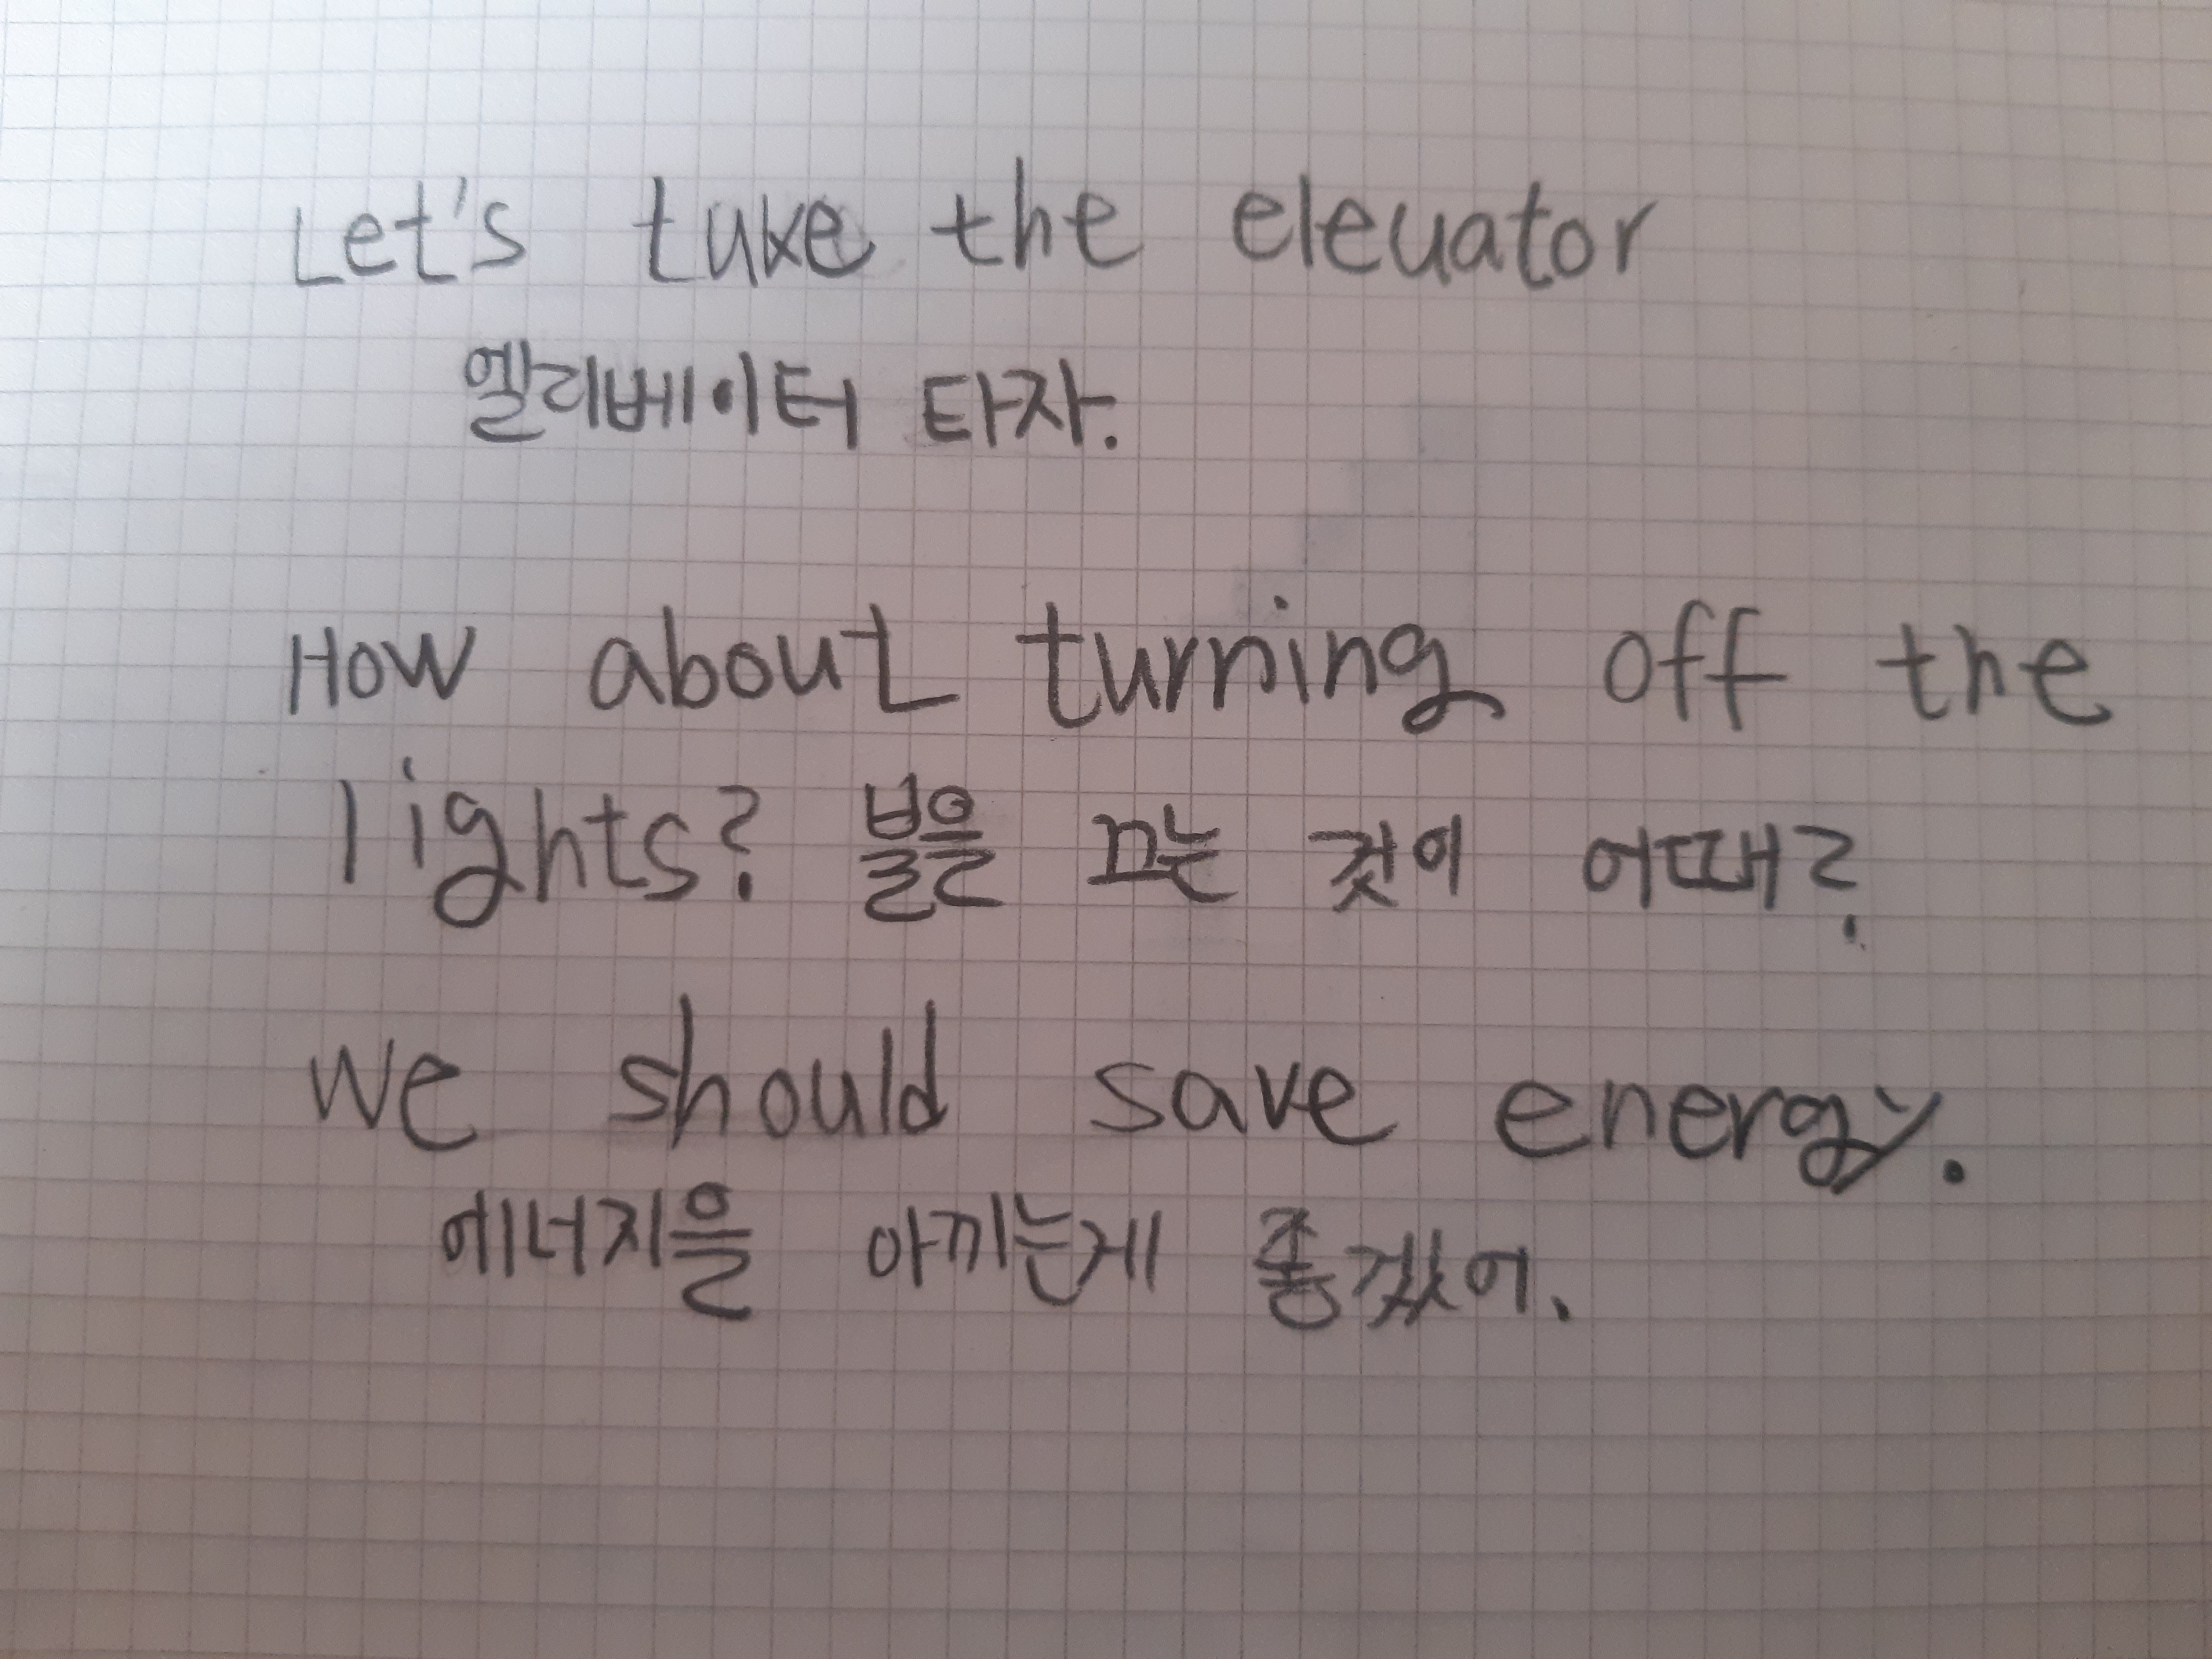 Let's take the elevator
엘리베이터 타자.
How about turning off the
lights? 불을 끄는 것이 어때?
We should save energy.
에너지을 아끼는게 좋겠어.